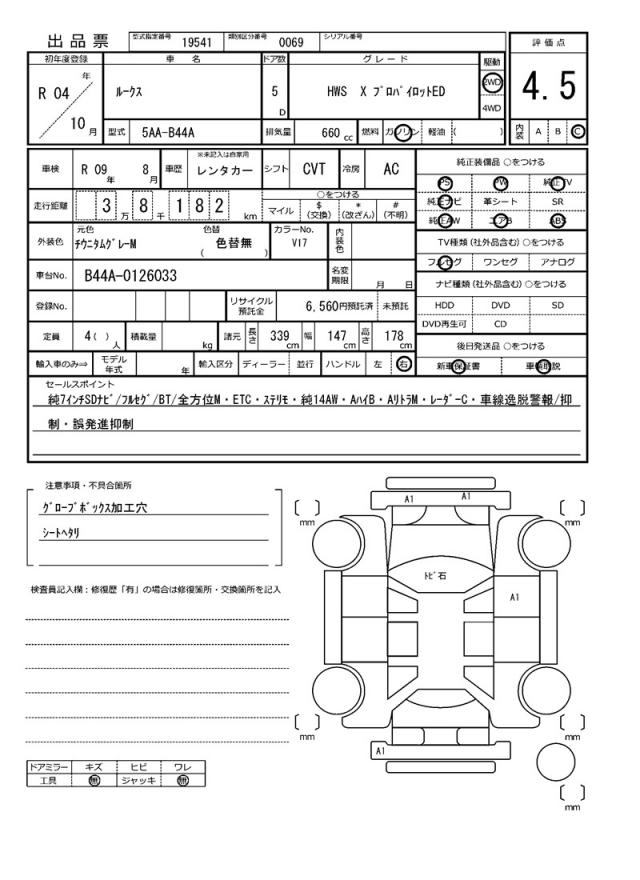 出品票
型式指定番号 19541 類別区分番号 0069 シリアル番号
初年度登録 車名 ドア数 グレード 駆動 評価点
R 04 年 ルークス 5 D HWS X プロパイロットED 2WD 4WD 4.5
10 月 型式 5AA-B44A 排気量 660 cc 燃料 ガソリン 軽油 ( ) 内装 A B C
車検 R 09 年 8 月 車歴 ※未記入は自家用 レンタカー シフト CVT 冷房 AC
純正装備品 ○をつける
PS PW 純正TV
純正ナビ 革シート SR
純正AW エアB ABS
走行距離 3 万 8 千 1 8 2 km ○をつける
マイル $(交換) *(改ざん) #(不明)
外装色 元色 チタニウムグレーM 色替 色替無 ( ) カラーNo. V17 内装色
TV種類(社外品含む)○をつける
フルセグ ワンセグ アナログ
車台No. B44A-0126033 名変期限 月 日
ナビ種類(社外品含む)○をつける
HDD DVD SD
DVD再生可 CD
登録No. リサイクル預託金 6,560円預託済 未預託
定員 4( )人 積載量 kg 諸元 長さ 339 cm 幅 147 cm 高さ 178 cm
後日発送品 ○をつける
新車保証書 車輌取説
輸入車のみ⇒ モデル年式 年 輸入区分 ディーラー 並行 ハンドル 左 右
セールスポイント
純7インチSDナビ/フルセグ/BT/全方位M・ETC・ステリモ・純14AW・AハイB・AリトラM・レーダーC・車線逸脱警報/抑
制・誤発進抑制
注意事項・不具合箇所
グローブボックス加工穴
シートヘタリ
検査員記入欄:修復歴「有」の場合は修復箇所・交換箇所を記入
A1 A1
mm mm
トビ石
A1
mm mm
A1
mm
ドアミラー キズ ヒビ ワレ
工具 無 ジャッキ 無